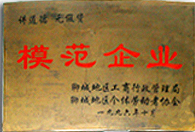 讲道德 无假货
模范企业
聊城地区工商行政管理局
聊城地区个体劳动者协会
一九九六年十月